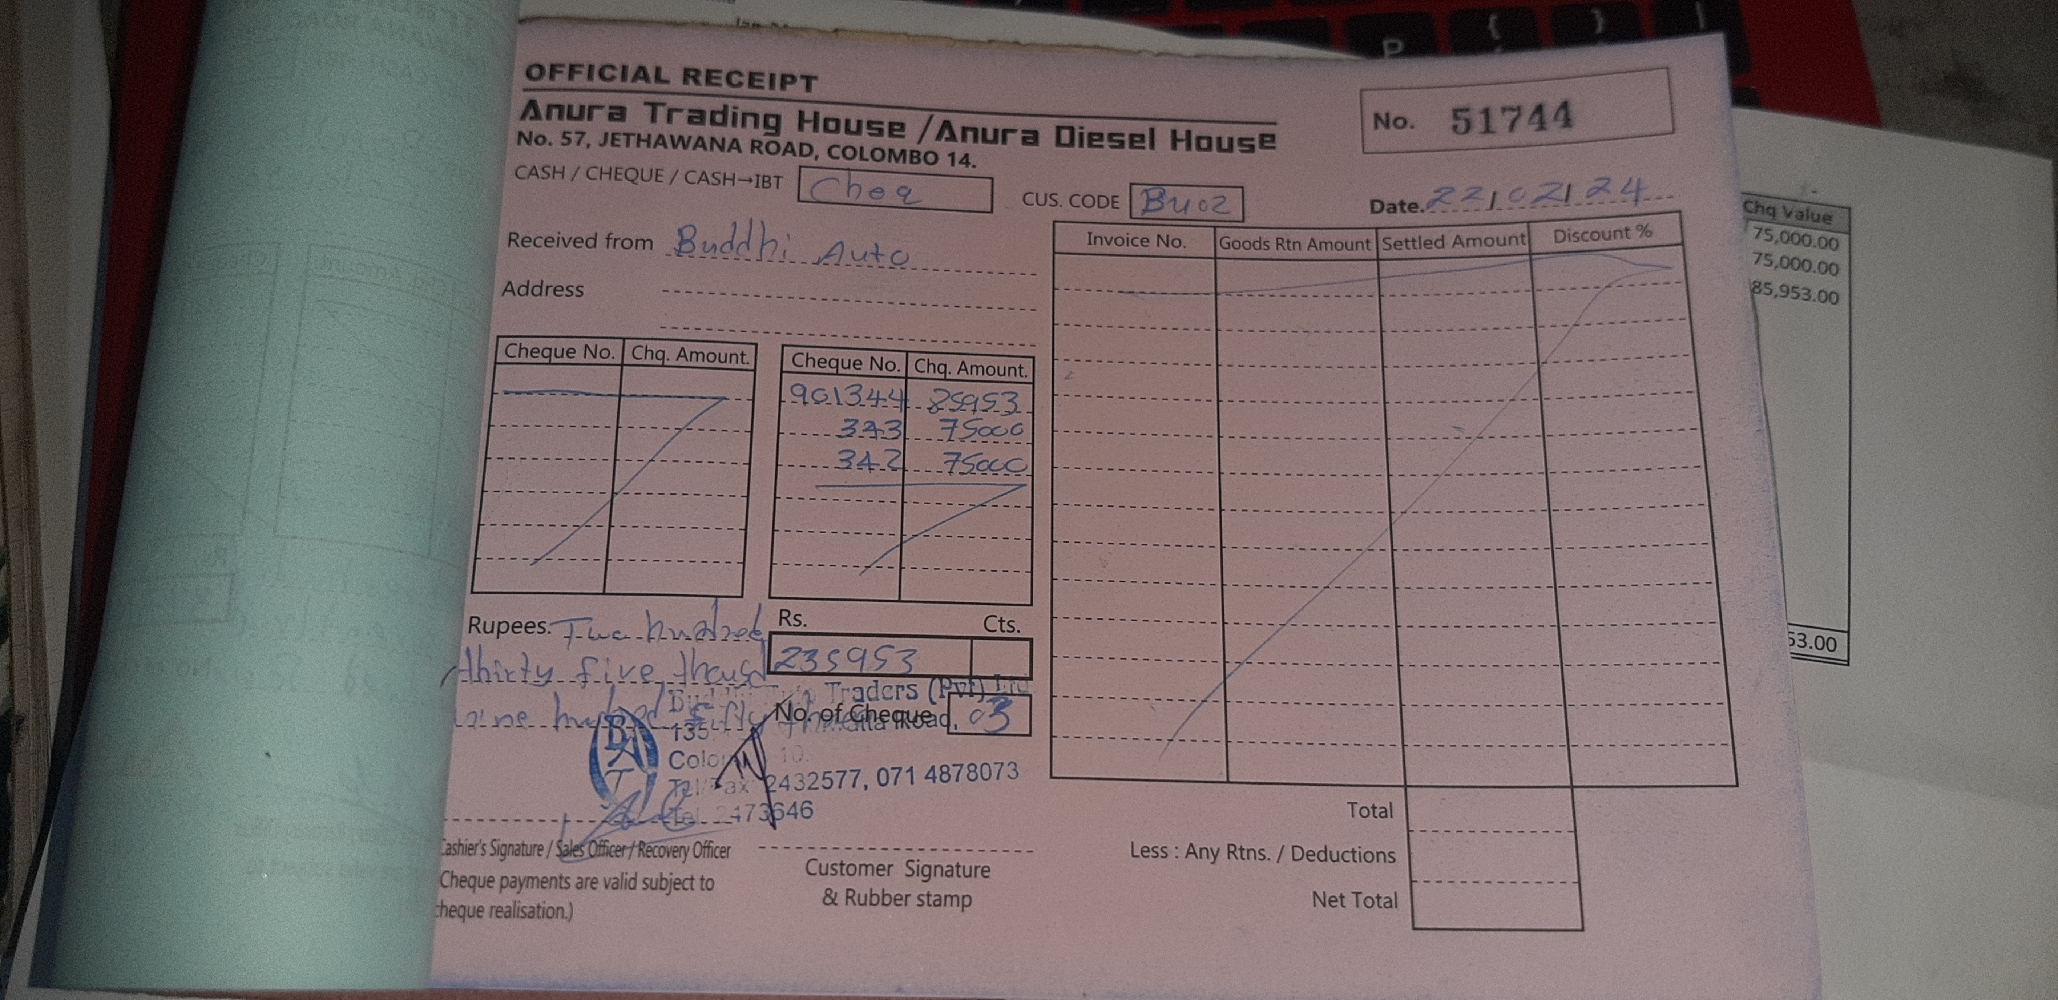 OFFICIAL RECEIPT
Anura Trading House / Anura Diesel House
No. 57, JETHAWANA ROAD, COLOMBO 14.
No. 51744
CASH / CHEQUE / CASH→IBT Cheq
CUS. CODE Bu02
Date. 22/02/24
Received from Buddhi Auto
Address
Cheque No. Chq. Amount.
Cheque No. Chq. Amount.
901344 85953
343 75000
342 75000
Invoice No. Goods Rtn Amount Settled Amount Discount %
Rupees. Two hundred
thirty five thousd
nine hundred fifty three
Rs. Cts.
235953
No. of Cheque 03
Traders (Pvt) Ltd
135
Road,
Colo 10.
Tel/Fax 2432577, 071 4878073
Tel. 2473646
BAT
Cashier's Signature / Sales Officer / Recovery Officer
Cheque payments are valid subject to
cheque realisation.)
Customer Signature
& Rubber stamp
Total
Less : Any Rtns. / Deductions
Net Total
Chq Value
75,000.00
75,000.00
85,953.00
53.00
P { }